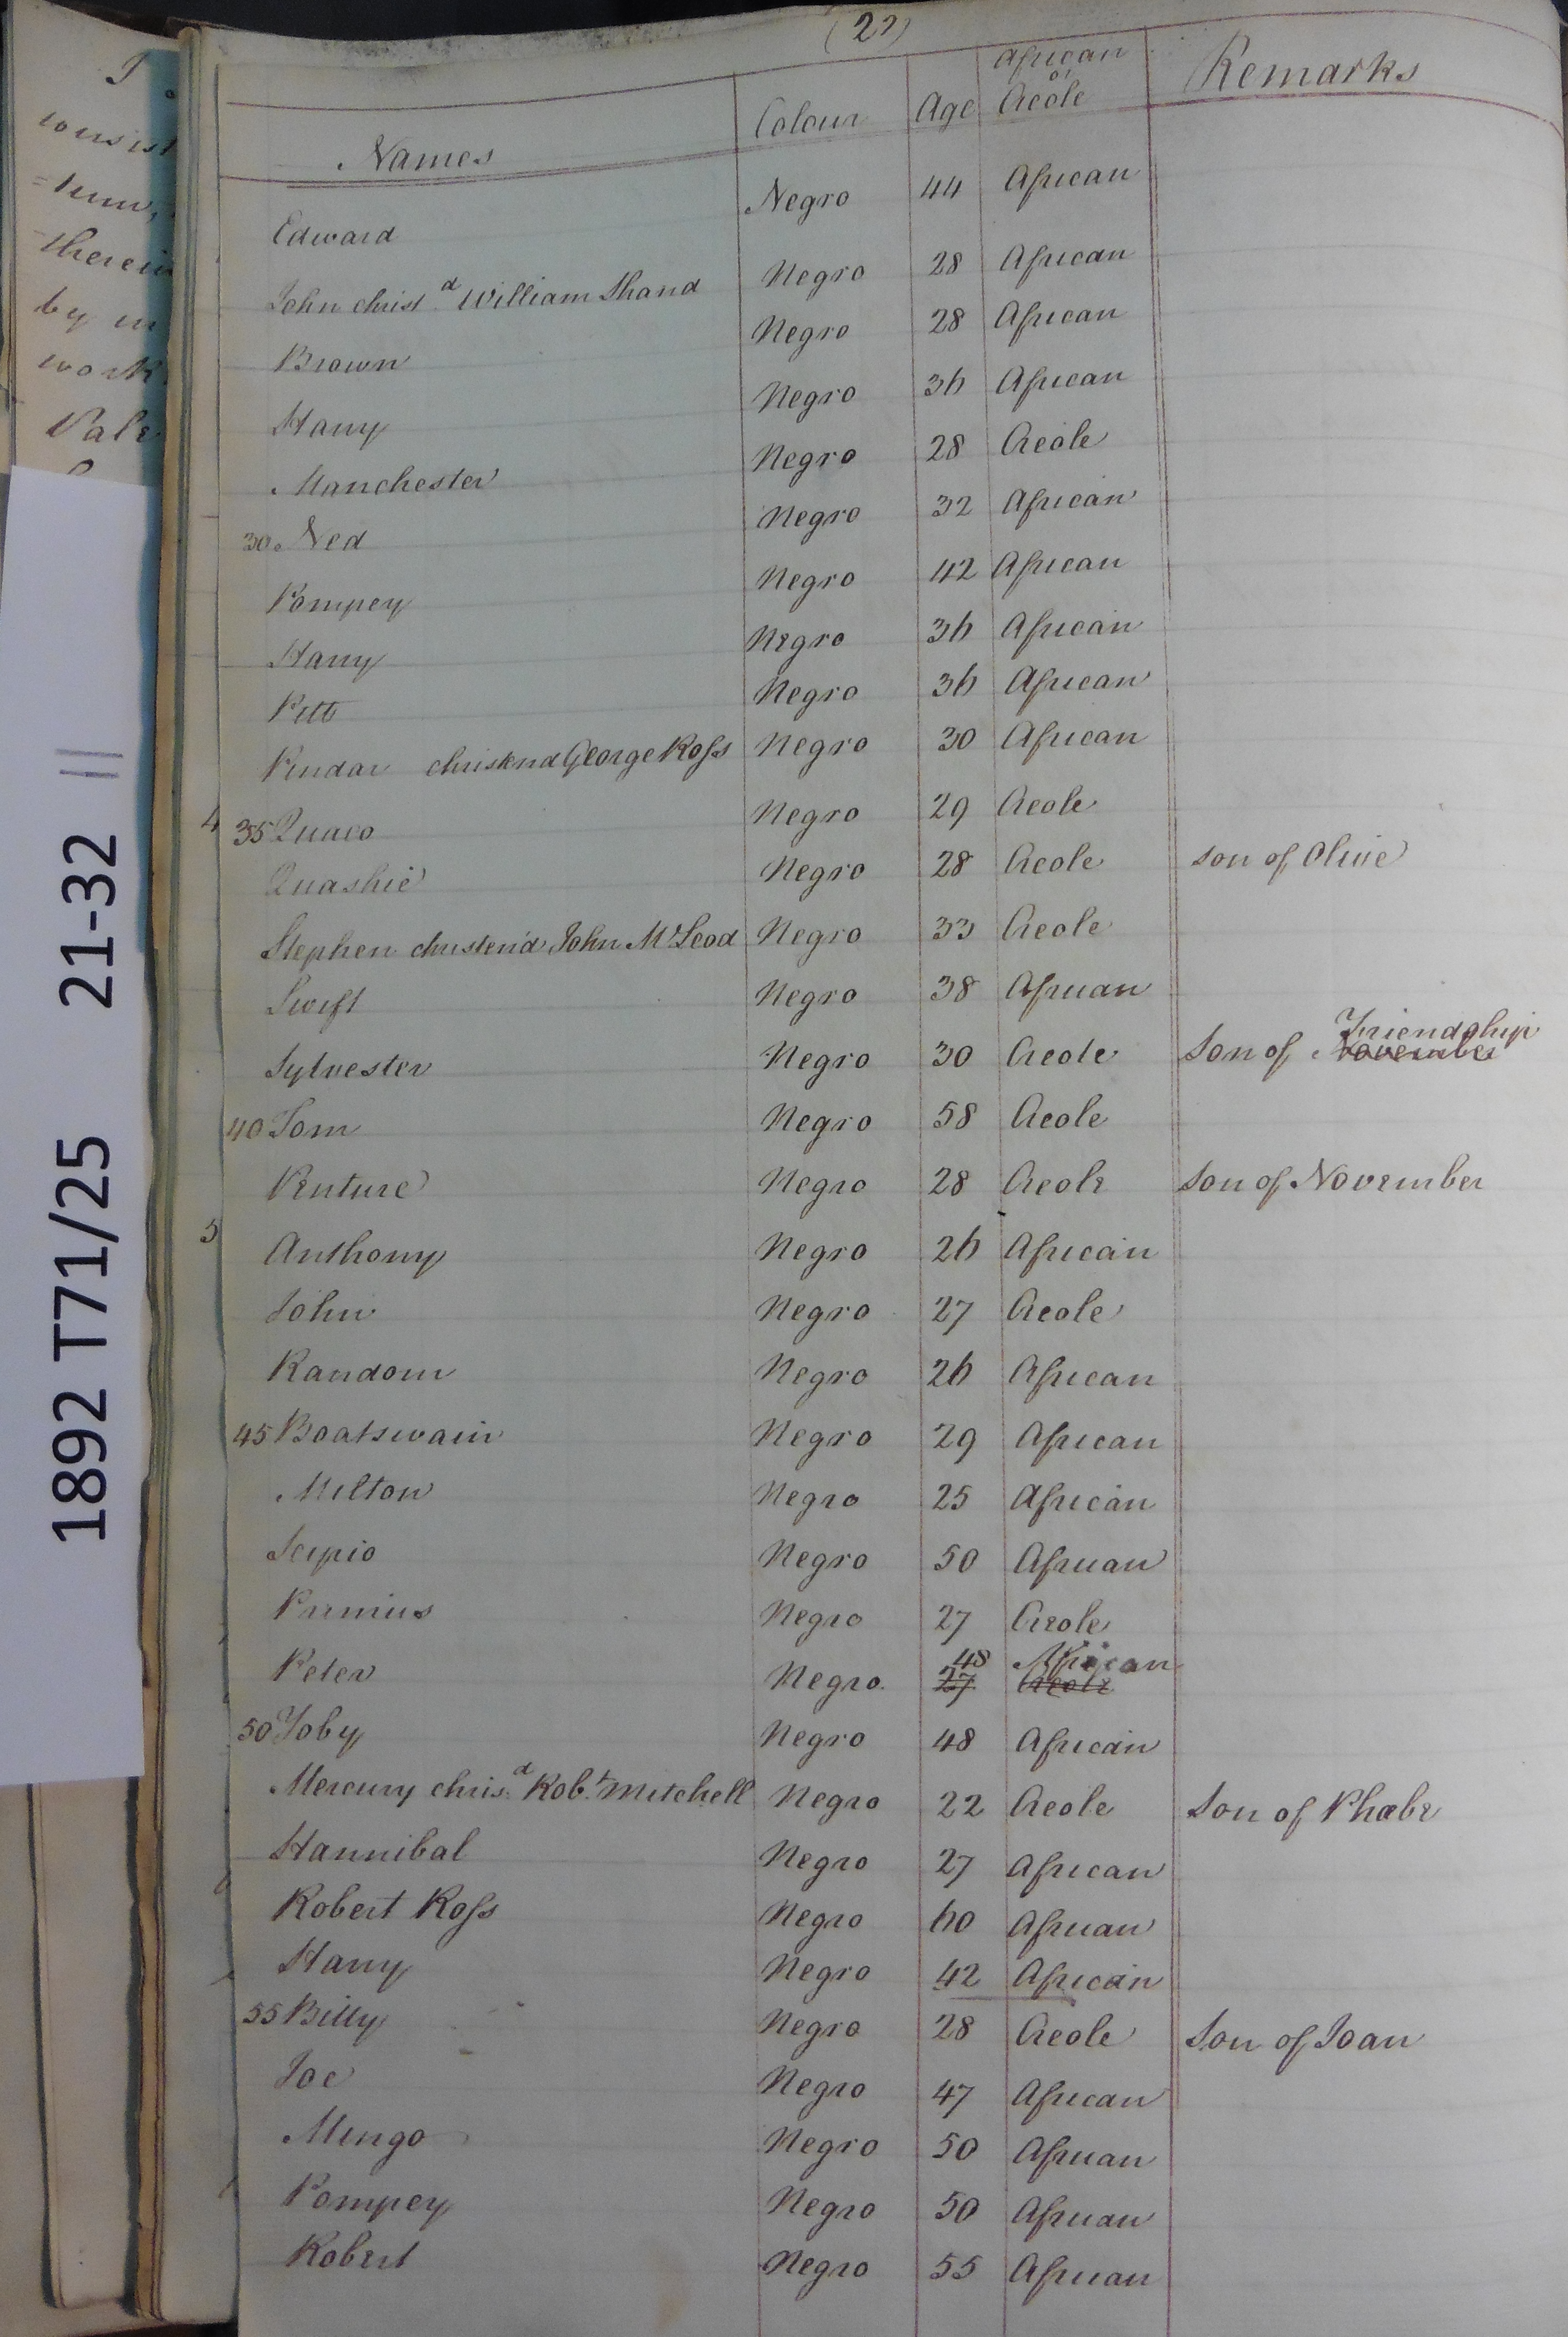 (22)
Names Colour Age African or Creole Remarks
Edward Negro 44 African
John christd William Shand Negro 28 African
Brown Negro 28 African
Harry Negro 36 African
Manchester Negro 28 Creole
30 Ned Negro 32 African
Pompey Negro 42 African
Harry Negro 36 African
Pitt Negro 36 African
Pindar christend George Ross Negro 30 African
4 35 Quaco Negro 29 Creole
Quashie Negro 28 Creole son of Olive
Stephen christen'd John McLeod Negro 33 Creole
Swift Negro 38 African
Friendship
Sylvester Negro 30 Creole Son of November
40 Tom Negro 58 Creole
Venture Negro 28 Creole Son of November
5 Anthony Negro 26 African
John Negro 27 Creole
Random Negro 26 African
45 Boatswain Negro 29 African
Milton Negro 25 African
Scipio Negro 50 African
Primus Negro 27 Creole
48 African
Peter Negro 27 Creole
50 Toby Negro 48 African
Mercury chrisd Robt Mitchell Negro 22 Creole Son of Phœbe
Hannibal Negro 27 African
Robert Ross Negro 60 African
Harry Negro 42 African
55 Billy Negro 28 Creole Son of Joan
Joe Negro 47 African
Mingo Negro 50 African
Pompey Negro 50 African
Robert Negro 55 African
1892 T71/25 21-32 ||
therein
by
work